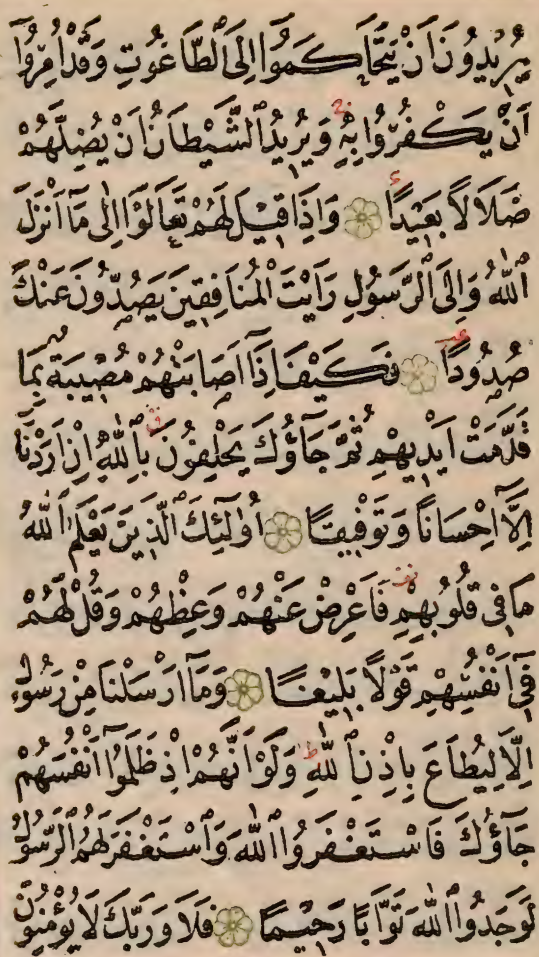 يُرِيدُونَ أَنْ يَتَحَاكَمُوا إِلَى الطَّاغُوتِ وَقَدْ أُمِرُوا
أَنْ يَكْفُرُوا بِهِ وَيُرِيدُ الشَّيْطَانُ أَنْ يُضِلَّهُمْ
ضَلَالًا بَعِيدًا وَإِذَا قِيلَ لَهُمْ تَعَالَوْا إِلَى مَا أَنْزَلَ
اللَّهُ وَإِلَى الرَّسُولِ رَأَيْتَ الْمُنَافِقِينَ يَصُدُّونَ عَنْكَ
صُدُودًا فَكَيْفَ إِذَا أَصَابَتْهُمْ مُصِيبَةٌ بِمَا
قَدَّمَتْ أَيْدِيهِمْ ثُمَّ جَاؤُكَ يَحْلِفُونَ بِاللَّهِ إِنْ أَرَدْنَا
إِلَّا إِحْسَانًا وَتَوْفِيقًا أُولَئِكَ الَّذِينَ يَعْلَمُ اللَّهُ
مَا فِي قُلُوبِهِمْ فَأَعْرِضْ عَنْهُمْ وَعِظْهُمْ وَقُلْ لَهُمْ
فِي أَنْفُسِهِمْ قَوْلًا بَلِيغًا وَمَا أَرْسَلْنَا مِنْ رَسُولٍ
إِلَّا لِيُطَاعَ بِإِذْنِ اللَّهِ وَلَوْ أَنَّهُمْ إِذْ ظَلَمُوا أَنْفُسَهُمْ
جَاؤُكَ فَاسْتَغْفَرُوا اللَّهَ وَاسْتَغْفَرَ لَهُمُ الرَّسُولُ
لَوَجَدُوا اللَّهَ تَوَّابًا رَحِيمًا فَلَا وَرَبِّكَ لَا يُؤْمِنُونَ